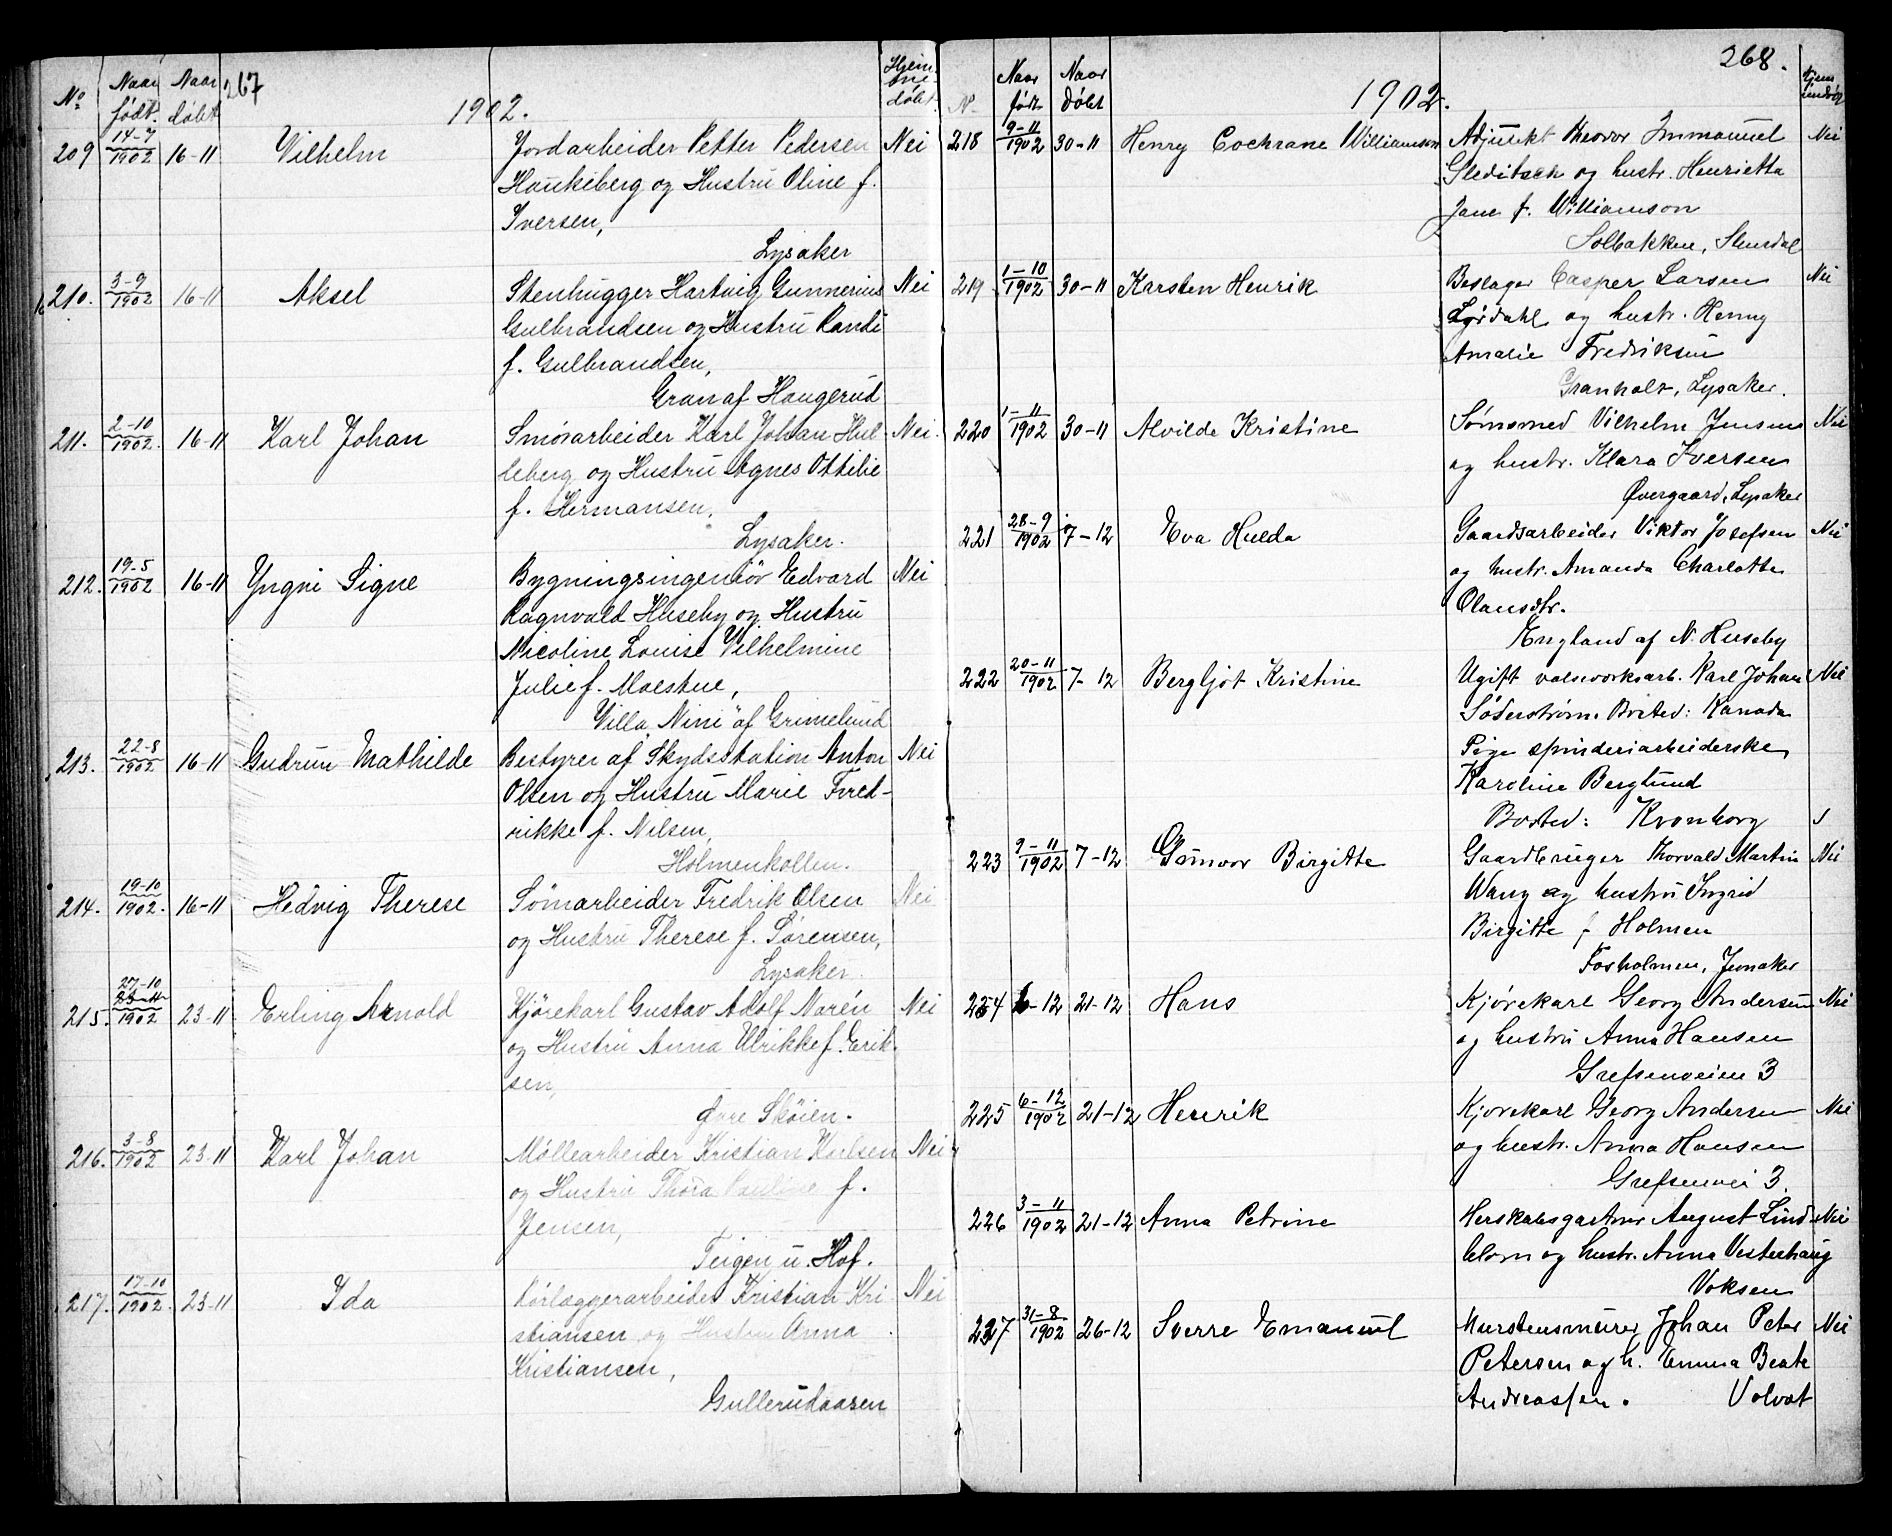 267
No Naar født. Naar døbt 1902. Hjemmedøbt.
209 14-7 1902 16-11 Vilhelm Jordarbeider Petter Pedersen Nei
Haukeberg og Hustru Oline f.
Iversen,
Lysaker
210. 3-9 1902 16-11 Aksel Stenhugger Hartvig Gunnerius Nei
Gulbrandsen og Hustru Randi
f. Gulbrandsen,
Gran af Haugerud
211. 2-10 1902. 16-11 Karl Johan Smørarbeider Karl Johan Hul- Nei.
leberg og Hustru Agnes Ottilie
f. Hermansen,
Lysaker.
212. 19-5 1902 16-11 Yngvi Signe Bygningsingeniør Edvard Nei
Ragnvald Huseby og Hustru
Nicoline Louise Vilhelmine
Julie f. Moestue,
Villa „Nini" af Grimelund
213. 22-8 1902 16-11 Gudrun Mathilde Bestyrer af Skydsstation Anton Nei
Olsen og Hustru Marie Fred-
rikke f. Nilsen,
Holmenkollen.
214. 19-10 1902. 16-11 Hedvig Therese Sømarbeider Fredrik Olsen Nei
og Hustru Therese f. Sørensen,
Lysaker.
215. 27-10 1902 23-11 Erling Arnold Kjørekarl Gustav Adolf Norén Nei
og Hustru Anna Ulrikke f. Erik-
sen,
Øvre Skøien.
216. 3-8 1902 23-11 Karl Johan Møllearbeider Kristian Karlsen Nei
og Hustru Thora Pauline f.
Jensen,
Teigen u. Hof.
217. 17-10 1902. 23-11 Ida Rørlæggerarbeider Kristian Kri Nei
stiansen og Hustru Anna
Kristiansen,
Gullerudaasen
268.
N. Naar født Naar døbt 1902. Hjemmedøbt
218 9-11 1902 30-11 Henry Cochrane Williamson Adjunkt Theodor Immanuel Nei
Sleditsch og hustr. Henrietta
Jane f. Williamson
Solbakken, Slemdal
219 1-10 1902 30-11 Karsten Henrik Beslager Casper Larsen Nei
Lørdahl og hustr. Henny
Amalie Fredriksen
Granholt, Lysaker.
220 1-11 1902 30-11 Alvilde Kristine Sømsmed Vilhelm Jensen Nei
og hustr. Klara Iversen
Øvergaard, Lysaker
221 28-9 1902 7-12 Eva Hulda Gaardsarbeider Viktor Josefsen Nei
og hustr. Amanda Charlotte
Olausdtr.
England af N. Huseby
222 20-11 1902 7-12 Bergljót Kristine Ugift valseværksarb. Karl Johan Nei
Søderstrøm. Bosted: Kanada
Pige spinderiarbeiderske
Karoline Berglund
Bosted: Kronborg
223 9-11 1902 7-12 Gunvor Birgitte Gaardbruger Thorvald Martin Nei
Wang og hustru Ingrid
Birgitte f Holmen
Fosholmen, Junaker
224 6-12 21-12 Hans Kjørekarl Georg Andersen Nei
og hustru Anna Hansen
Grefsenveien 3
225 6-12 1902 21-12 Henrik Kjørekarl Georg Andersen Nei
og hustr. Anna Hansen
Grefsenvei 3.
226 3-11 1902 21-12 Anna Petrine Herskabsgartner August Lind Nei
blom og hustr. Anna Vesterhaug
Voksen
227 31-8 1902 26-12 Sverre Emanuel Murstensmurer Johan Peter Nei
Petersen og h. Emma Beate
Andreassen. Volvat